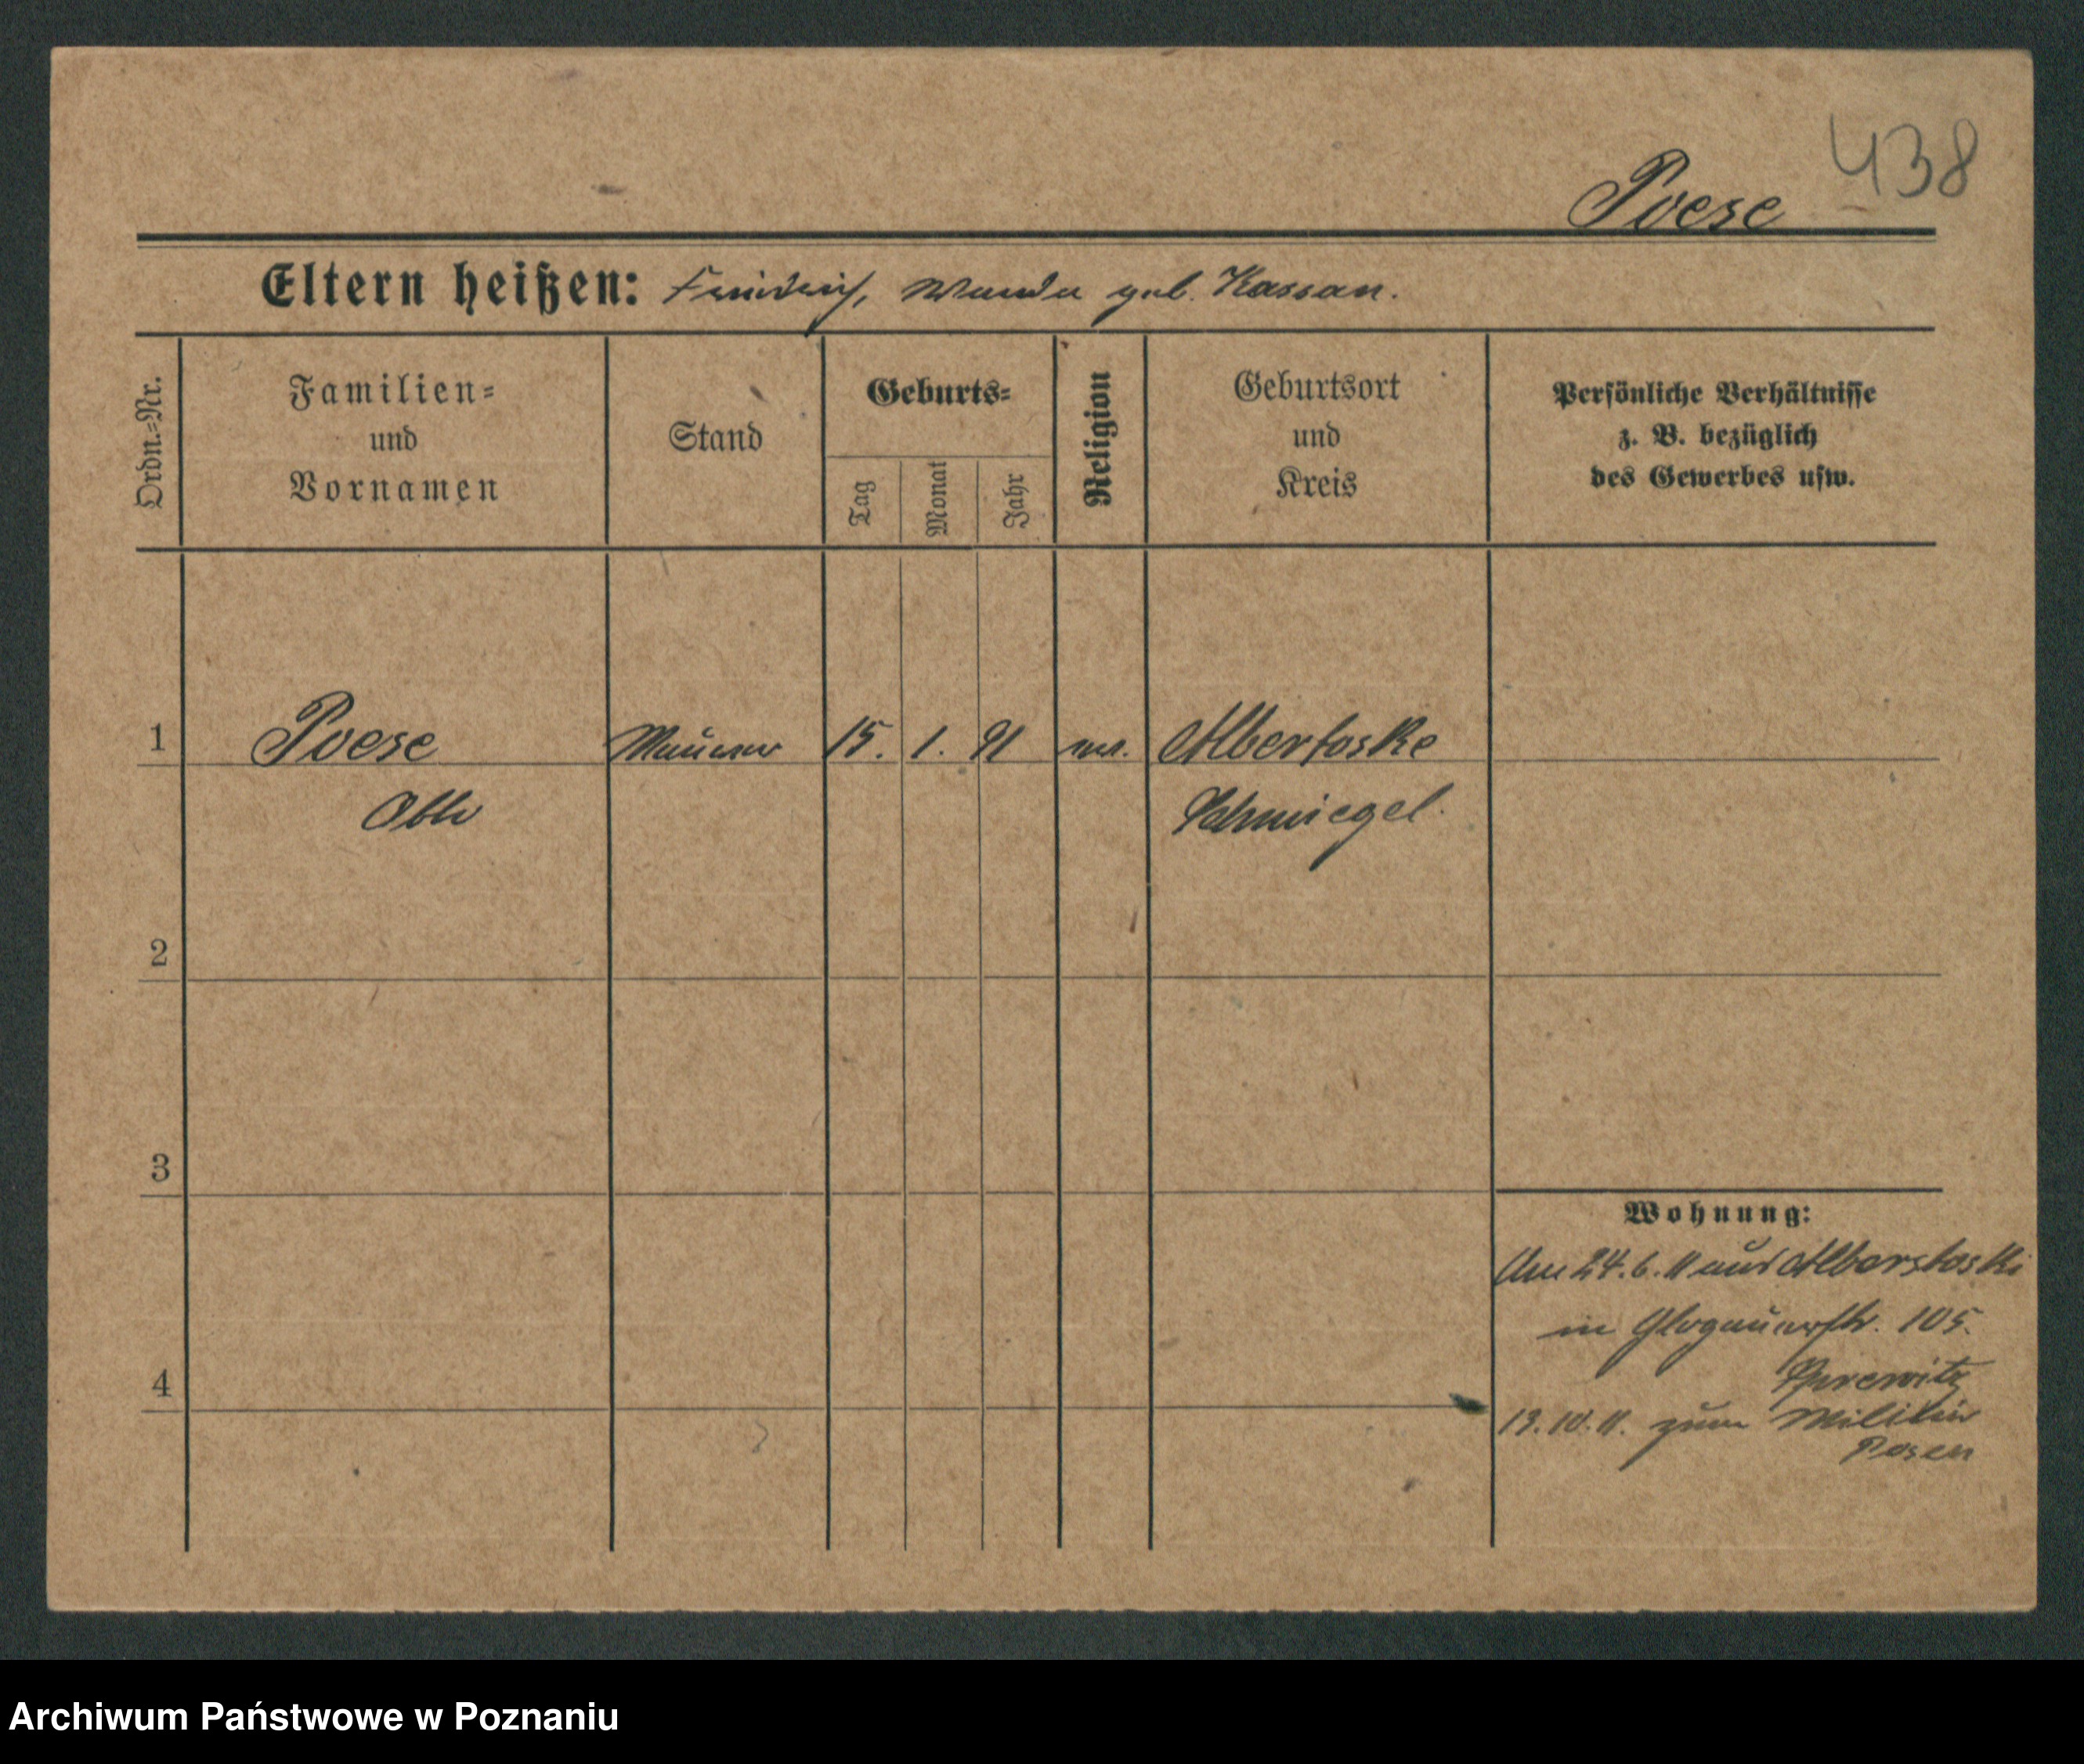 438
Poese
Eltern heißen: Friedrich, Wanda geb. Kassan.
Ordn.=Nr.
Familien=
und
Vornamen
Stand
Geburts=
Tag
Monat
Jahr
Religion
Geburtsort
und
Kreis
Persönliche Verhältnisse
z. B. bezüglich
des Gewerbes usw.
1 Poese Maurer 15. 1. 91 Albertoske
Otto Schmiegel.
2
3
4
Wohnung:
Am 24.6.11 aus Alberstoski
in Glogauerstr. 105.
13.10.11. zum Militär
Posen
Archiwum Państwowe w Poznaniu